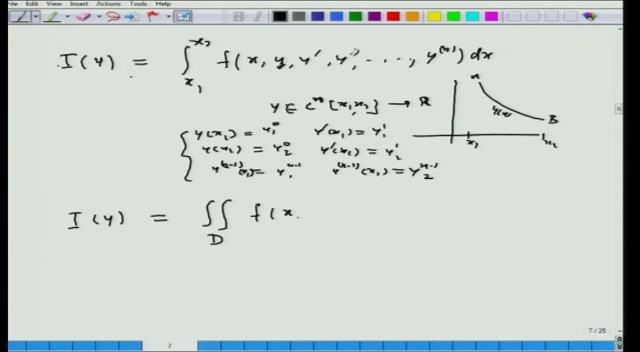 File Edit View Insert Actions Tools Help
I(y) = ∫_{x₁}^{x₂} f(x, y, y', y'', ..., y^{(n)}) dx
y ∈ C^n [x₁, x₂] → R
y(x₁) = y₁^0 y'(x₁) = y₁'
y(x₂) = y₂^0 y'(x₂) = y₂'
y^{(n-1)}(x₁) = y₁^{n-1} y^{(n-1)}(x₂) = y₂^{n-1}
A
y(x)
B
x₁ x₂
I(y) = ∬_D f(x,
7 / 25
7